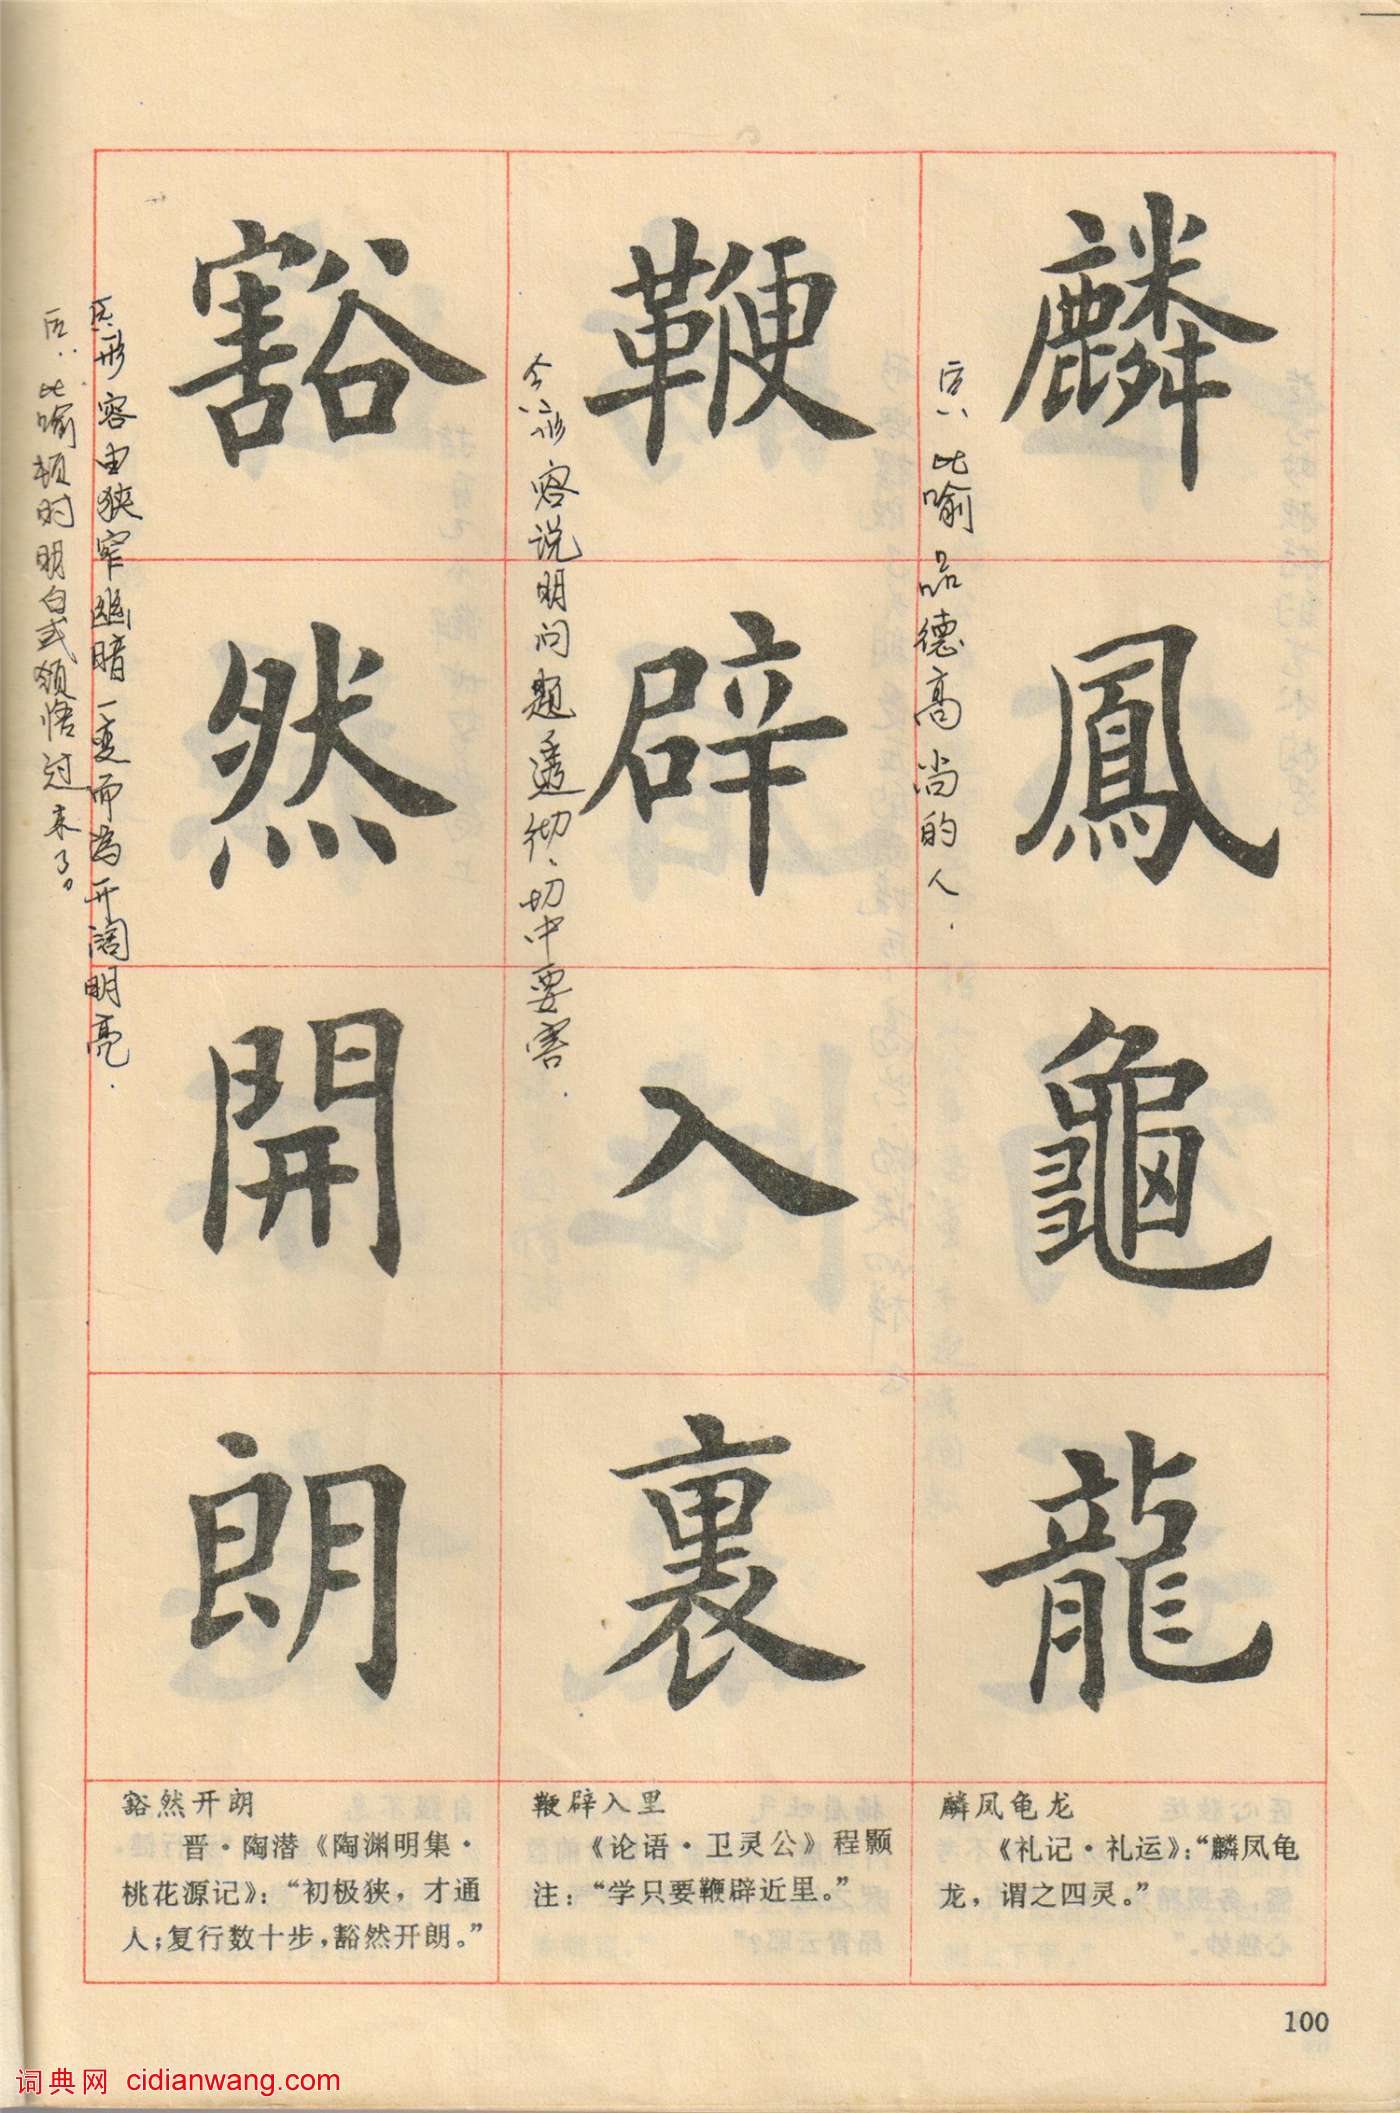 麟鳳龜龍
后:比喻品德高尚的人.
鞭辟入裏
今:形容说明问题透彻、切中要害.
豁然開朗
原:形容由狭窄幽暗一变而为开阔明亮.
后:比喻顿时明白或领悟过来了。
麟凤龟龙
《礼记·礼运》:“麟凤龟
龙，谓之四灵。”
鞭辟入里
《论语·卫灵公》程颢
注:“学只要鞭辟近里。”
豁然开朗
晋·陶潜《陶渊明集·
桃花源记》:“初极狭，才通
人;复行数十步，豁然开朗。”
100
词典网 cidianwang.com